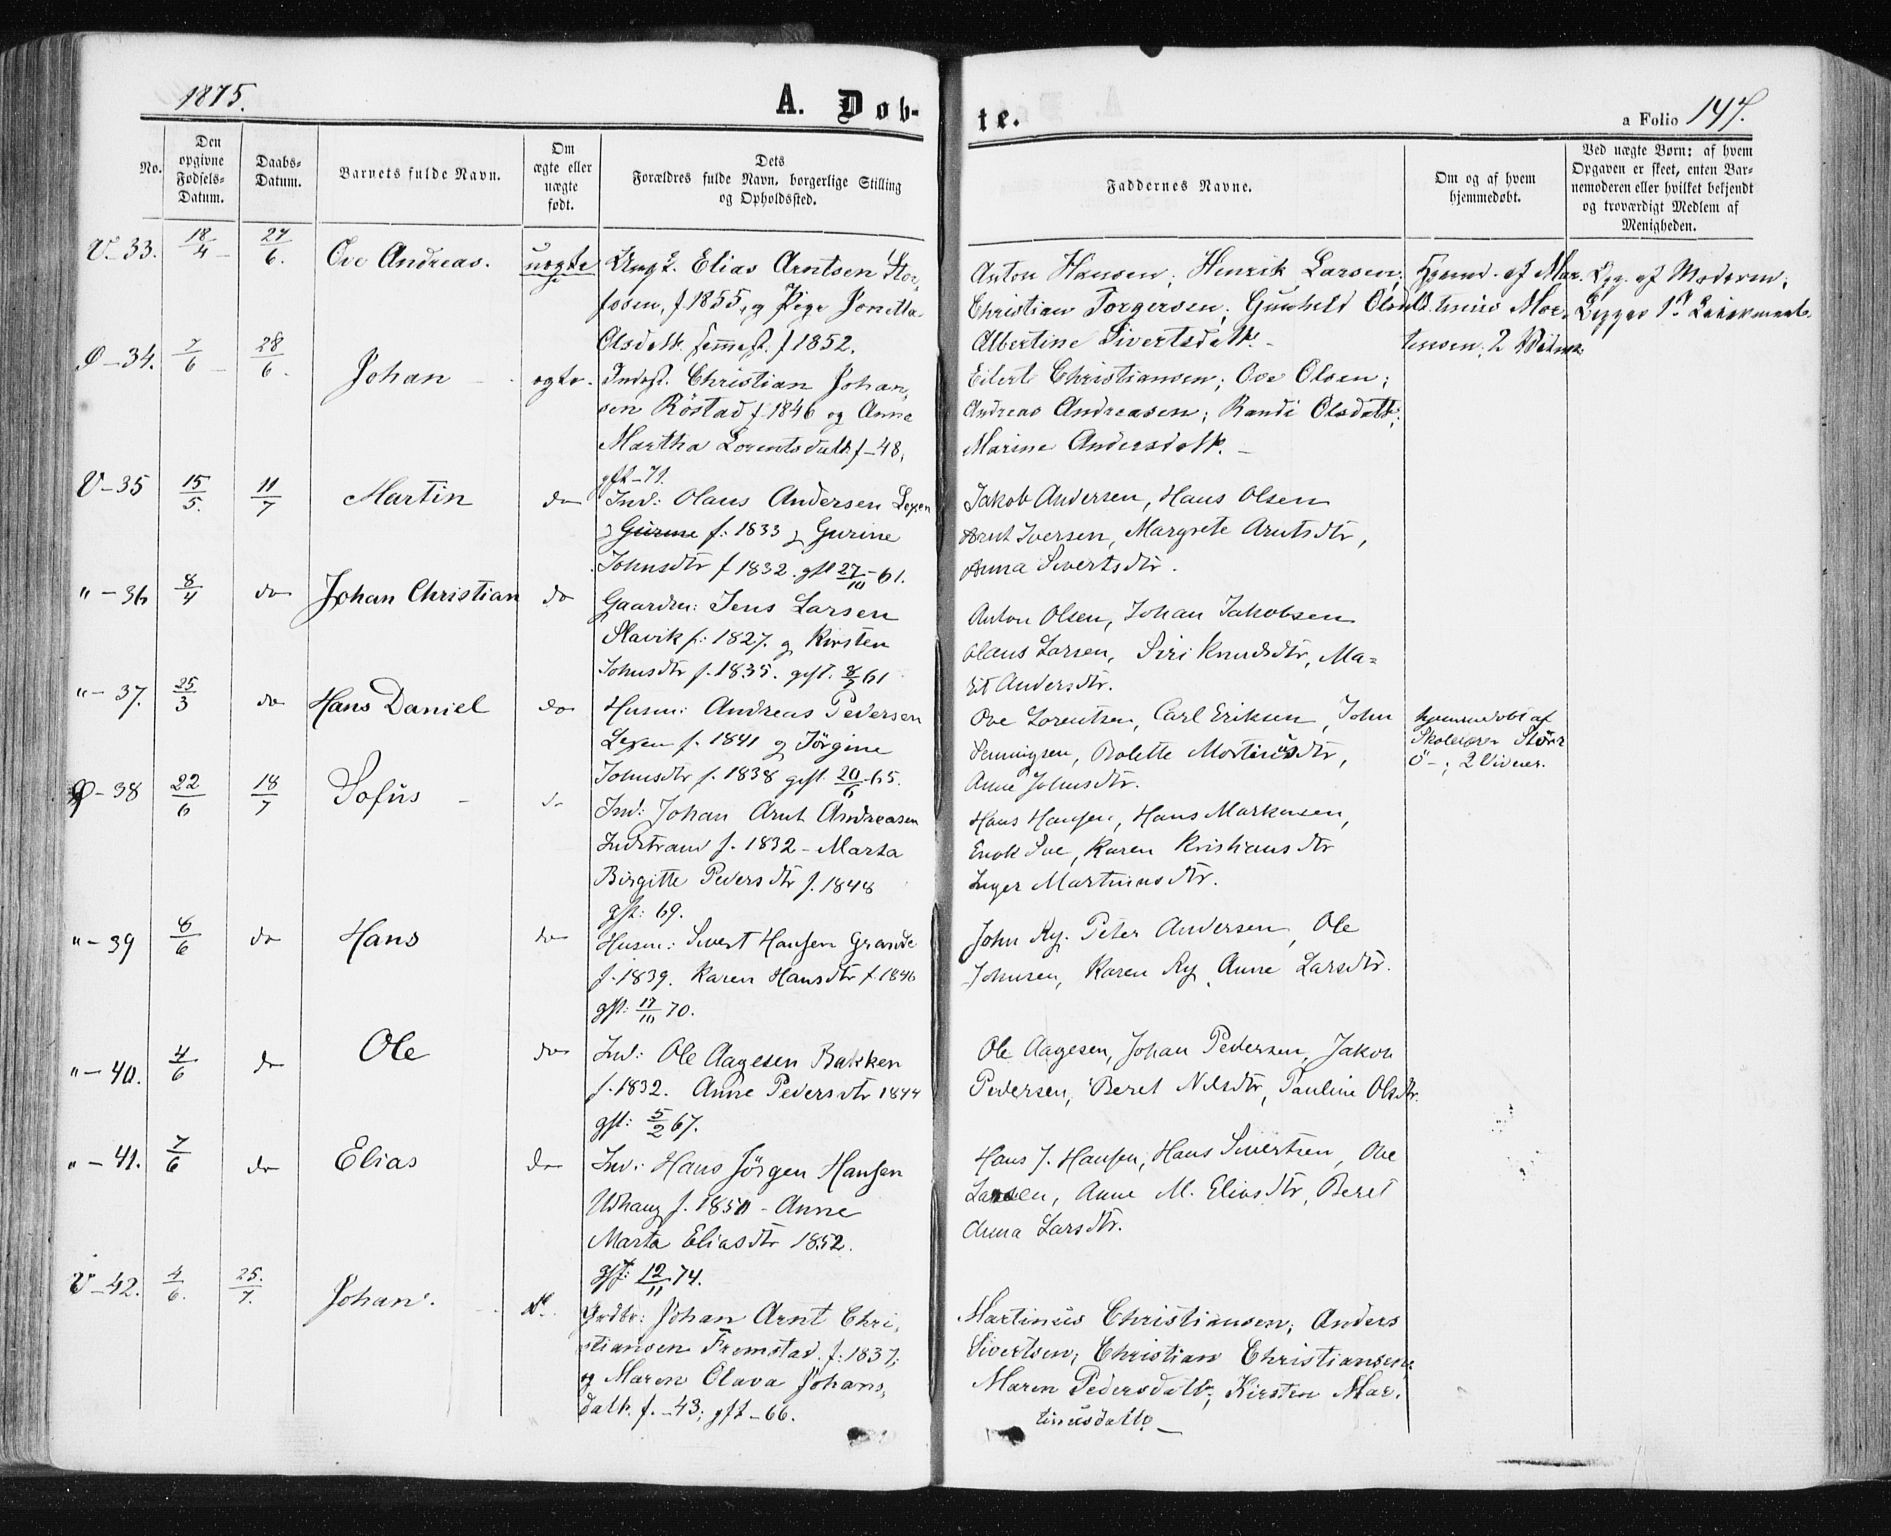 1875.
A. Døb-
te.
a Folio 147.
No.
Den
opgivne
Fødsels-
Datum.
Daabs-
Datum.
Barnets fulde Navn.
Om
ægte eller
uægte
født.
Dets
Forældres fulde Navn, borgerlige Stilling
og Opholdssted.
Faddernes Navne.
Om og af hvem
hjemmedøbt.
Ved uægte Børn: af hvem
Opgaven er skeet, enten Bar-
nemoderen eller hvilket bekjendt
og troværdigt Medlem af
Menigheden.
V-33. 18/4 - 27/6. Ove Andreas. uægte Ungk. Elias Arntsen Stor-
fosen, f. 1855, og Pige Jonetta
Olsdatt. f 1852.
Anton Hansen; Henrik Larsen;
Christian Torgersen; Gunhild Olsdtt.
Albertine Sivertsdatt. -
Hjemd. af Mar-
tinus Mor-
tensen; 2 Vidner
Opg. af Moderen;
Begges 1st Leiermaal.
Ø-34. 7/6 - 28/6. Johan - ægte. Inderst. Christian Johan-
sen Röstad f 1846 og Anne
Martha Lorentsdatt. f-48,
gft-71.
Eilert Christiansen; Ove Olsen;
Andreas Andreasen; Randi Olsdatt.;
Marine Andersdatt. -
V-35 15/5. 11/7 Martin do Ind: Olaus Andersen Lexen
f: 1833 og Gurine
Johnsdtr f 1832. gft 27/10-61.
Jakob Andersen, Hans Olsen
Arnt Iversen, Margrete Arntsdtr,
Anna Sivertsdtr.
"-36 8/4 do Johan Christian do Gaardm: Jens Larsen
Slavik f: 1827. og Kirsten
Johnsdtr f. 1835. gift. 61
Anton Olsen, Johan Jakobsen
Olaus Larsen, Siri Knudsdtr, Ma-
rit Andersdtr.
"-37. 25/3 do Hans Daniel do Husm: Andreas Pedersen
Lexen f. 1841 og Jörgine
Johnsdtr f. 1838 gift. 20/6-65.
Ove Lorentsen, Carl Eriksen, John
Henningsen, Bolette Mortinusdtr,
Anne Johnsdtr.
hjemmedöbt af
Skolelærer Störr
ö-; 2 Vidner.
Ø-38 22/6 18/7 Sofus - do Ind: Johan Arnt Andreasen
Indstrand f. 1832 - Marta
Birgitte Pedersdtr f. 1848
gft: 69.
Hans Hansen, Hans Markusen,
Enok Ive, Karen Kristiansdtr
Inger Martinusdtr.
"-39 6/6 do Hans do Husm: Sivert Hansen Grande
f. 1839. Karen Hansdtr f. 1846
gft: 17/10 70.
John Ry. Peter Andersen, Ole
Johnsen, Karen Ry, Anne Larsdtr.
"-40. 4/6 do Ole do Ind: Ole Aagesen Bakken
f. 1832. Anne Pedersdtr 1844
gft: 5/2 67.
Ole Aagesen, Johan Pedersen, Jakob
Pedersen, Beret Nilsdtr, Pauline Olsdtr.
"-41. 7/6 do Elias do Ind: Hans Jörgen Hansen
Udhaug f. 1850 - Anne
Marta Eliasdtr 1852.
gft: 12/11 74.
Hans J. Hansen, Hans Sivertsen, Ole
Larsen, Anne M. Eliasdtr, Beret
Anna Larsdtr.
V-42. 4/6. 25./7. Johan. - Johan Arnt Chri-
stiansen Fremstad. f: 1837;
og Maren Olava Johans-
datt. f. -43; gft-66.
Martinus Christiansen; Anders
Sivertsen; Christian Christiansen;
Maren Pedersdatt; Kirsten Mar-
tinusdatt. -